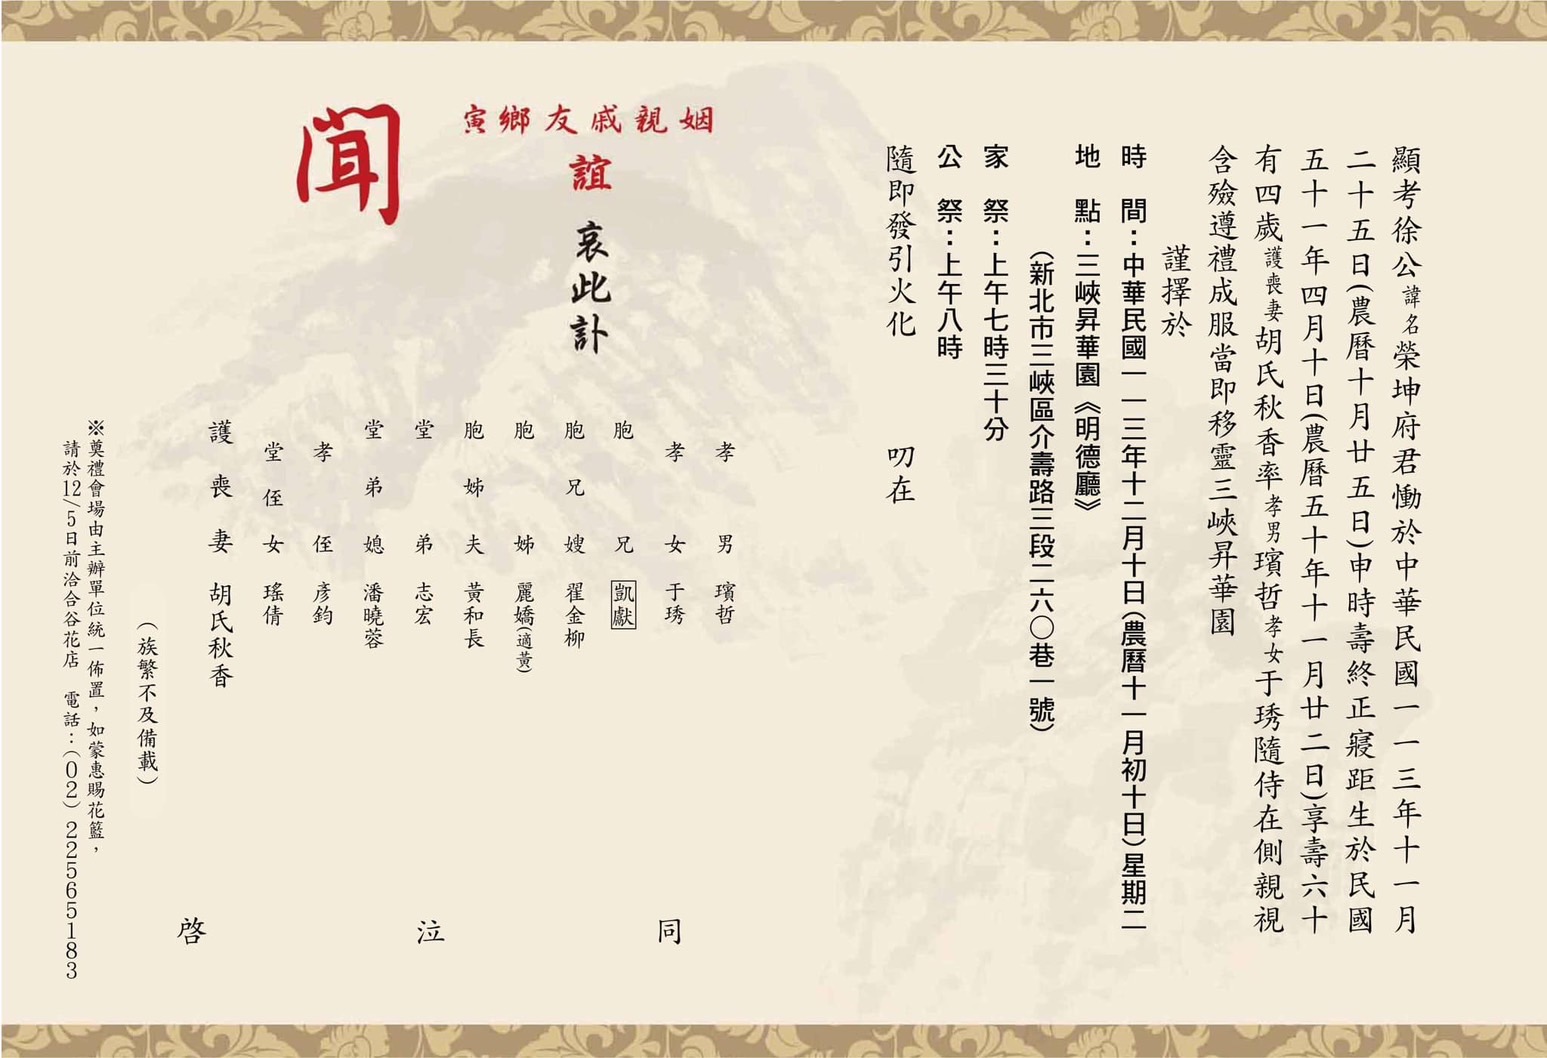 顯考徐公諱名榮坤府君慟於中華民國一一三年十一月
二十五日(農曆十月廿五日)申時壽終正寢距生於民國
五十一年四月十日(農曆五十年十一月廿二日)享壽六十
有四歲護喪妻胡氏秋香率孝男璸哲孝女于琇隨侍在側親視
含殮遵禮成服當即移靈三峽昇華園
謹擇於
時間：中華民國一一三年十二月十日(農曆十一月初十日)星期二
地點：三峽昇華園《明德廳》
(新北市三峽區介壽路三段二六〇巷一號)
家祭：上午七時三十分
公祭：上午八時
隨即發引火化 叨在
姻親戚友鄉寅
誼 哀此訃
聞
孝男 璸哲
孝女 于琇
胞兄 凱獻
胞兄嫂 翟金柳
胞姊 麗嬌(適黃)
胞姊夫 黃和長
堂弟 志宏
堂弟媳 潘曉蓉
孝侄 彥鈞
堂侄女 瑤倩
護喪妻 胡氏秋香
同泣啓
(族繁不及備載)
※奠禮會場由主辦單位統一佈置，如蒙惠賜花籃，
請於12/5日前洽合谷花店 電話：(02)22565183